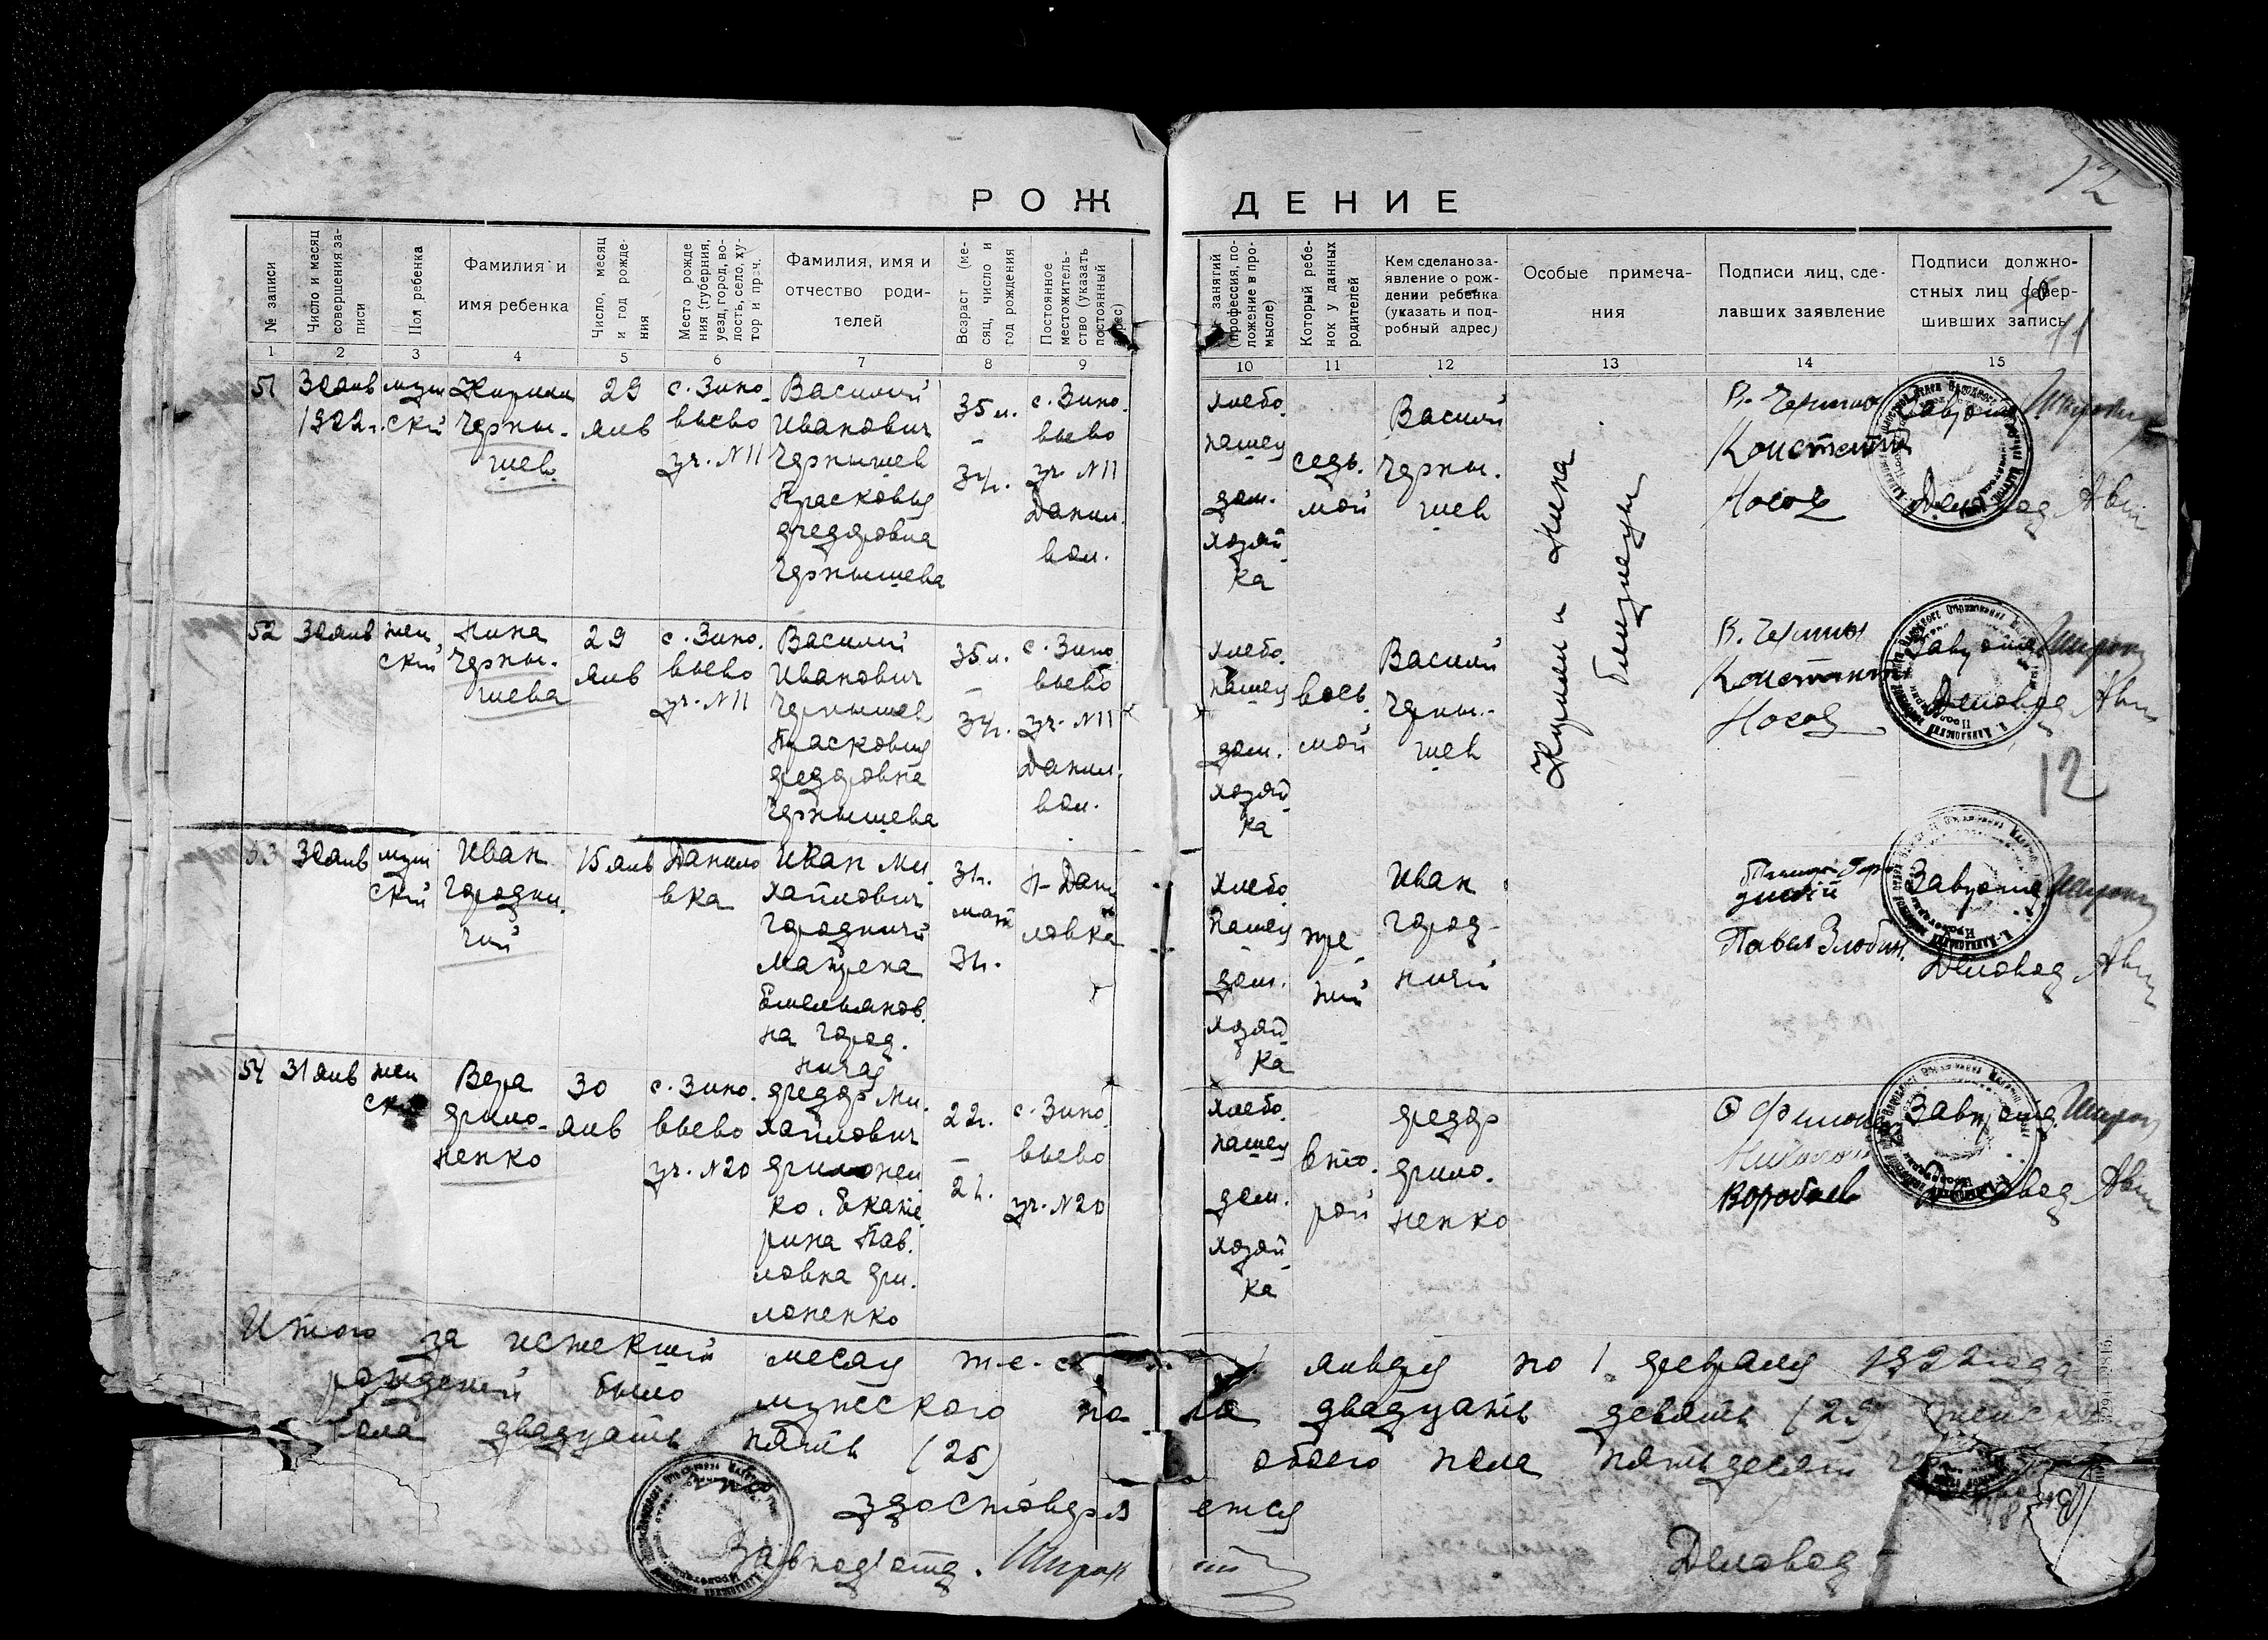 12
РОЖДЕНИЕ
№ записи
Число и месяц совершения записи
Пол ребенка
Фамилия и
имя ребенка
Число, месяц
и год рожде-
ния
Место рожде
ния (губерния,
уезд, город, во-
лость, село, ху-
тор и проч.
Фамилия, имя и
отчество роди-
телей
Возраст (ме-
сяц, число и
год рождения
Постоянное
местожитель-
ство (указать
постоянный
адрес)
занятий
(профессия, по-
ложение в про-
мысле)
Который ребе-
нок у данных
родителей
Кем сделано за-
явление о рож-
дении ребенка
(указать и под-
робный адрес)
Особые примеча-
ния
Подписи лиц, сде-
лавших заявление
Подписи должно-
стных лиц совер-
шивших запись
11
1 2 3 4 5 6 7 8 9 10 11 12 13 14 15
51
30 янв
1922 г.
муж
ский
Кирилл
Черны-
шев
29
янв
с. Зино-
вьево
уч. №11
Василий
Иванович
Чернышев
Прасковья
Федоровна
Чернышева
35 л.
-
34 г.
с. Зино-
вьево
уч. №11
Данил.
вол.
хлебо
пашец
дом.
хозяй
ка
седь-
мой
Василий
Черны-
шев
Кирилл и Нина
близнецы
В. Черныш
Константин
Носов
Деловод
52
30 янв
жен
ский
Нина
Черны-
шева
29
янв
с. Зино.
вьево
уч. №11
Василий
Иванович
Чернышев
Прасковья
Федоровна
Чернышева
35 л.
-
34 г.
с. Зино.
вьево
уч. №11
Данил.
вол.
хлебо
пашец
дом.
хозяй
ка
вось.
мой
Василий
Черны-
шев
В. Черныш
Константин
Носов
Деловод
12
53
30 янв
муж
ский
Иван
Городни.
чий
15 янв
Данило
вка
Иван Ми.
хайлович
Городничий
Матрена
Емельянов.
на Город.
ничая
31 г.
31 г.
Дани
ловка
хлебо
пашец
дом.
хозяй
ка
тре
тий
Иван
Город-
ничий
Павел Злобин.
Деловод
54
31 янв
жен
ский
Вера
Фило-
ненко
30
янв
с. Зино.
вьево
уч. №20
Федор Ми.
хайлович
Филонен
ко. Екате
рина Пав.
ловна Фи.
лоненко
22 г.
-
21.
с. Зино.
вьево
уч. №20
хлебо.
пашец
дом.
хозяй
ка
вто.
рой
Федор
Фило.
ненко
Воробьев
Итого за истекший месяц т-е-с 1 января по 1 февраля 1922 года
рождений было мужеского пола двадцать девять (29) женского
пола двадцать пять (25) обоего пола пятьдесят
удостоверяется
Завподотд.
Деловод